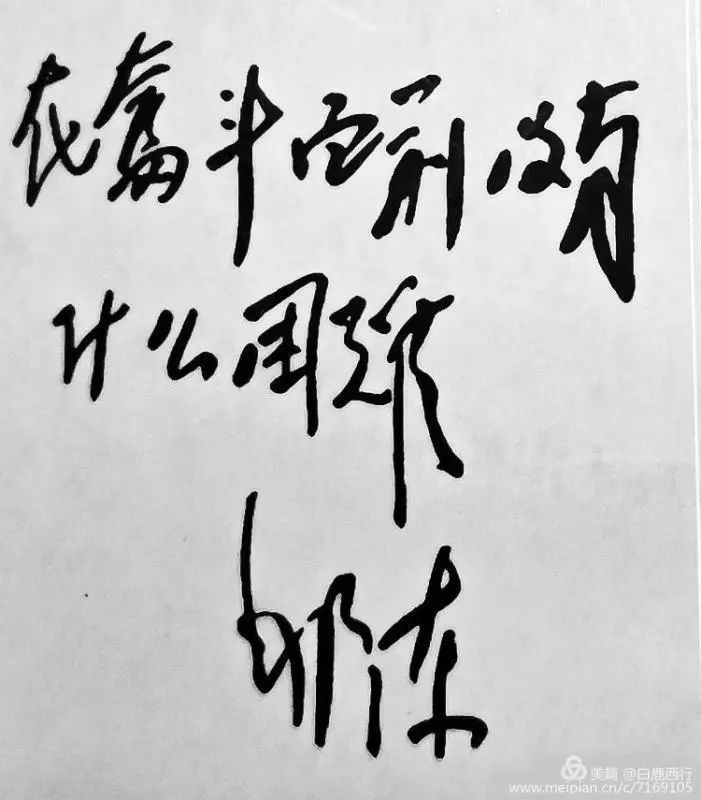 在奮斗面前没有
什么困难
美篇 @白鹿西行
www.meipian.cn/c/7169105